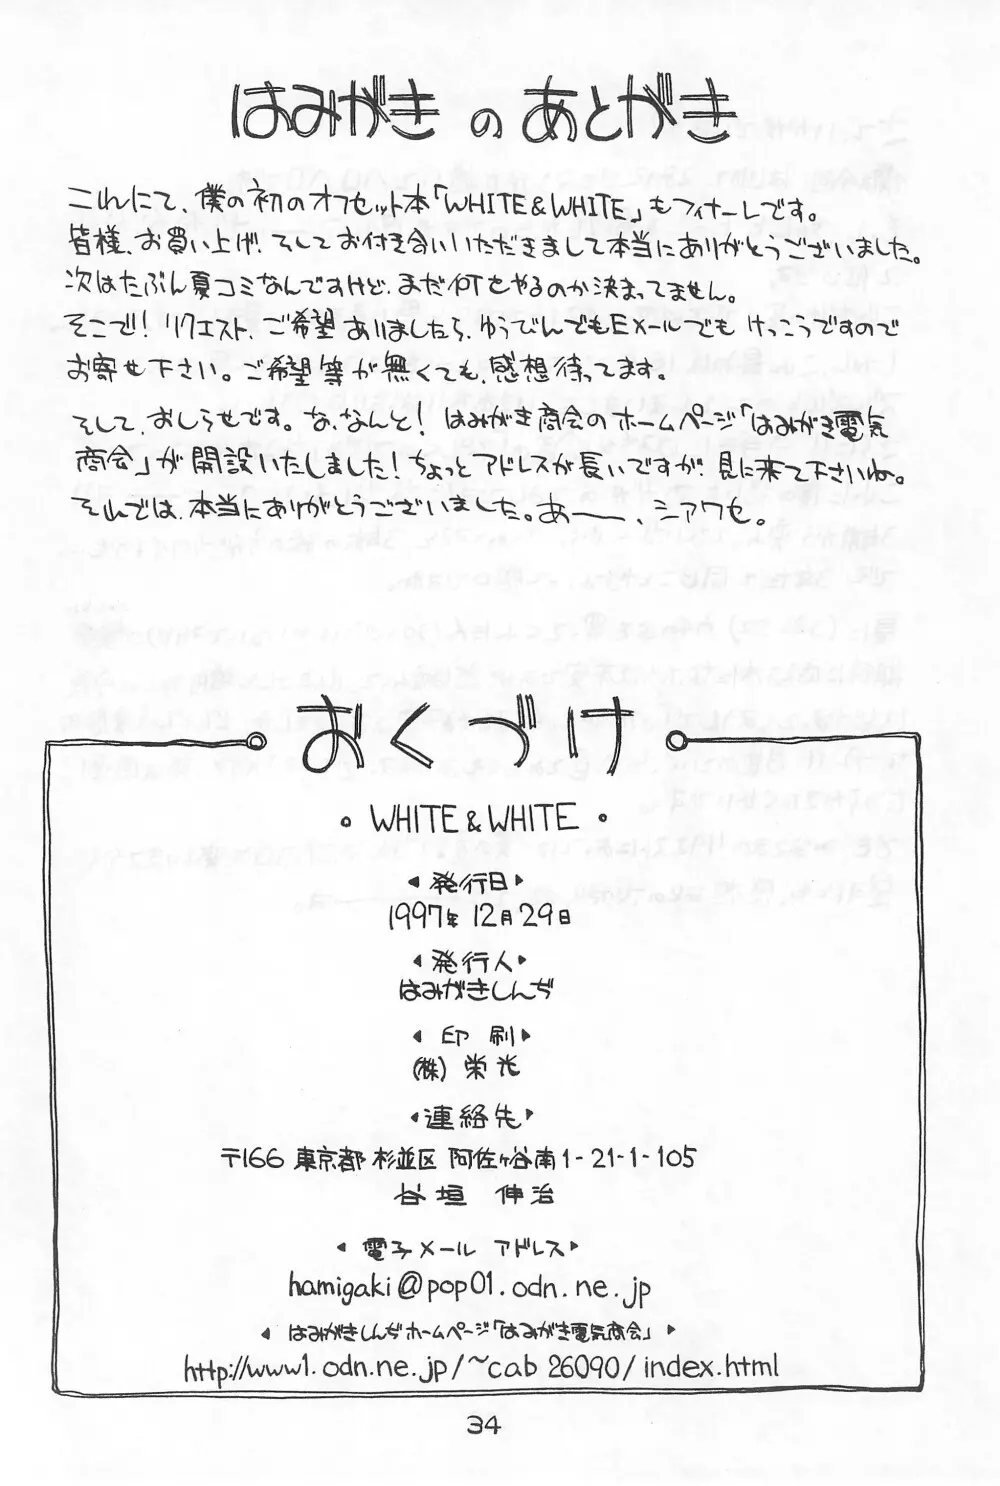 はみがき の あとがき
これにて、僕の初のオフセット本「WHITE&WHITE」もフィナーレです。
皆様、お買い上げ、そしてお付き合いいただきまして本当にありがとうございました。
次はたぶん夏コミなんですけど、まだ何をやるのか決まってません。
そこで!リクエスト、ご希望ありましたら、ゆうびんでもEメールでもけっこうですので
お寄せ下さい。ご希望等が無くても、感想待ってます。
そして、おしらせです。な、なんと!はみがき商会のホームページ「はみがき電気
商会」が開設いたしました!ちょっとアドレスが長いですが、見に来て下さいね。
それでは、本当にありがとうございました。あー、シアワセ。
おくづけ
。WHITE&WHITE。
◀発行日▶
1997年12月29日
◀発行人▶
はみがきしんぢ
◀印刷▶
(株)栄光
◀連絡先▶
〒166 東京都杉並区阿佐ヶ谷南1-21-1-105
谷垣 伸治
◀電子メールアドレス▶
hamigaki@pop01.odn.ne.jp
◀はみがきしんぢホームページ「はみがき電気商会」▶
http://www1.odn.ne.jp/~cab26090/index.html
34